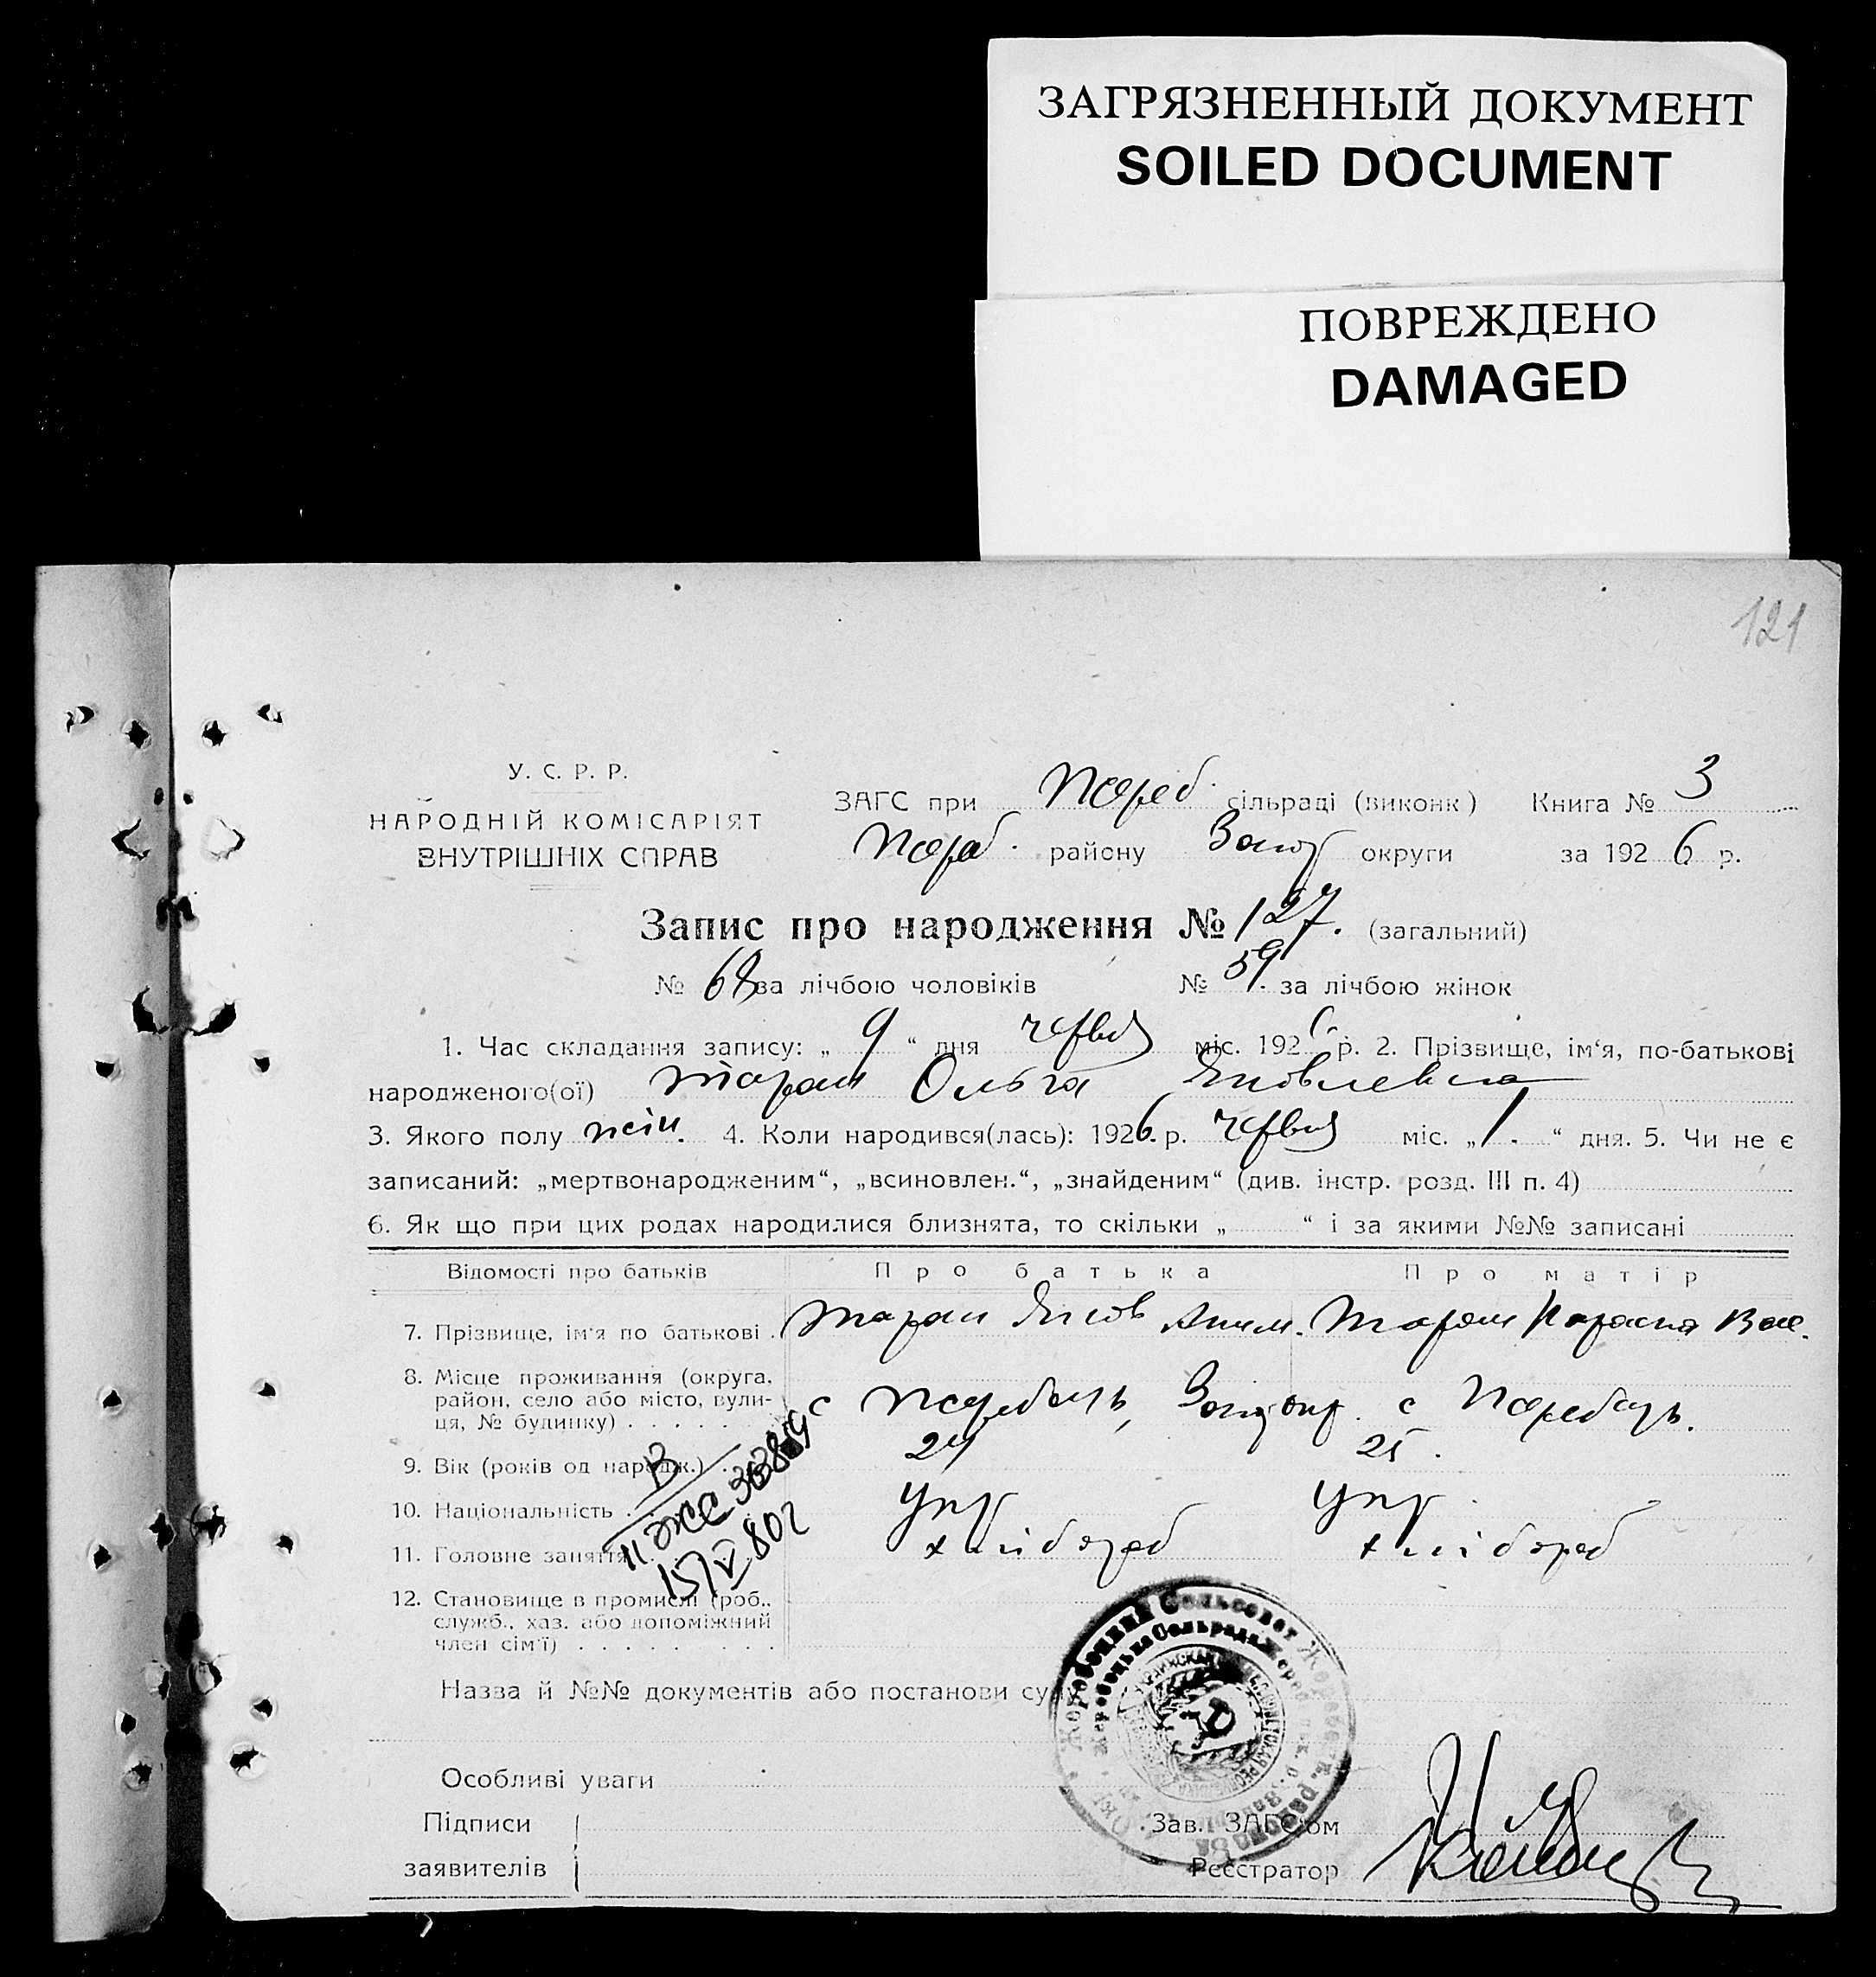 ЗАГРЯЗНЕННЫЙ ДОКУМЕНТ
SOILED DOCUMENT
ПОВРЕЖДЕНО
DAMAGED
121
У. С. Р. Р.
НАРОДНІЙ КОМІСАРІЯТ
ВНУТРІШНІХ СПРАВ
ЗАГС при Жереб. сільраді (виконк) Книга № 3
Жереб. району Запор округи за 1926 р.
Запис про народження № 127. (загальний)
№ 68 за лічбою чоловіків № 59. за лічбою жінок
1. Час складання запису: „ 9 “ дня червня міс. 1926 р. 2. Прізвище, ім‘я, по-батькові
народженого(ої) Таран Ольга Яковлевна
3. Якого полу жін. 4. Коли народився(лась): 1926. р. червня міс. „ 1. “ дня. 5. Чи не є
записаний: „мертвонародженим“, „всиновлен.“, „знайденим“ (див. інстр. розд. III п. 4)
6. Як що при цих родах народилися близнята, то скільки „ “ і за якими №№ записані
Відомості про батьків Про батька Про матір
7. Прізвище, ім‘я по батькові Таран Яков Таран Параска Вас.
8. Місце проживання (округа,
район, село або місто, вули-
ця, № будинку) с Жеребець, Запор окр. с Жеребець.
9. Вік (років од народж.) 24 25.
10. Національність Укр Укр.
11. Головне заняття хлібороб хлібороб
15/V 80г
12. Становище в промислі (роб.,
служб., хаз. або допоміжний
член сім‘ї)
Жеребецкий Сельсовет
Жеребецька Сельрада
Назва й №№ документів або постанови суду
Особливі уваги
Підписи
заявителів
Зав. ЗАГС‘ом
Реєстратор